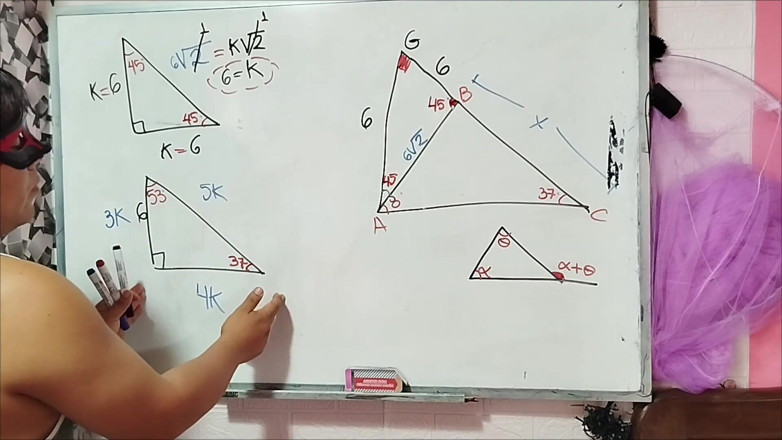 45
K=6
45
K=6
6√2 = K√2
1
1
6=K
53
6
3K
5K
37
4K
G
6
6
45
B
6√2
x
45
8
37
A
C
θ
α
α+θ